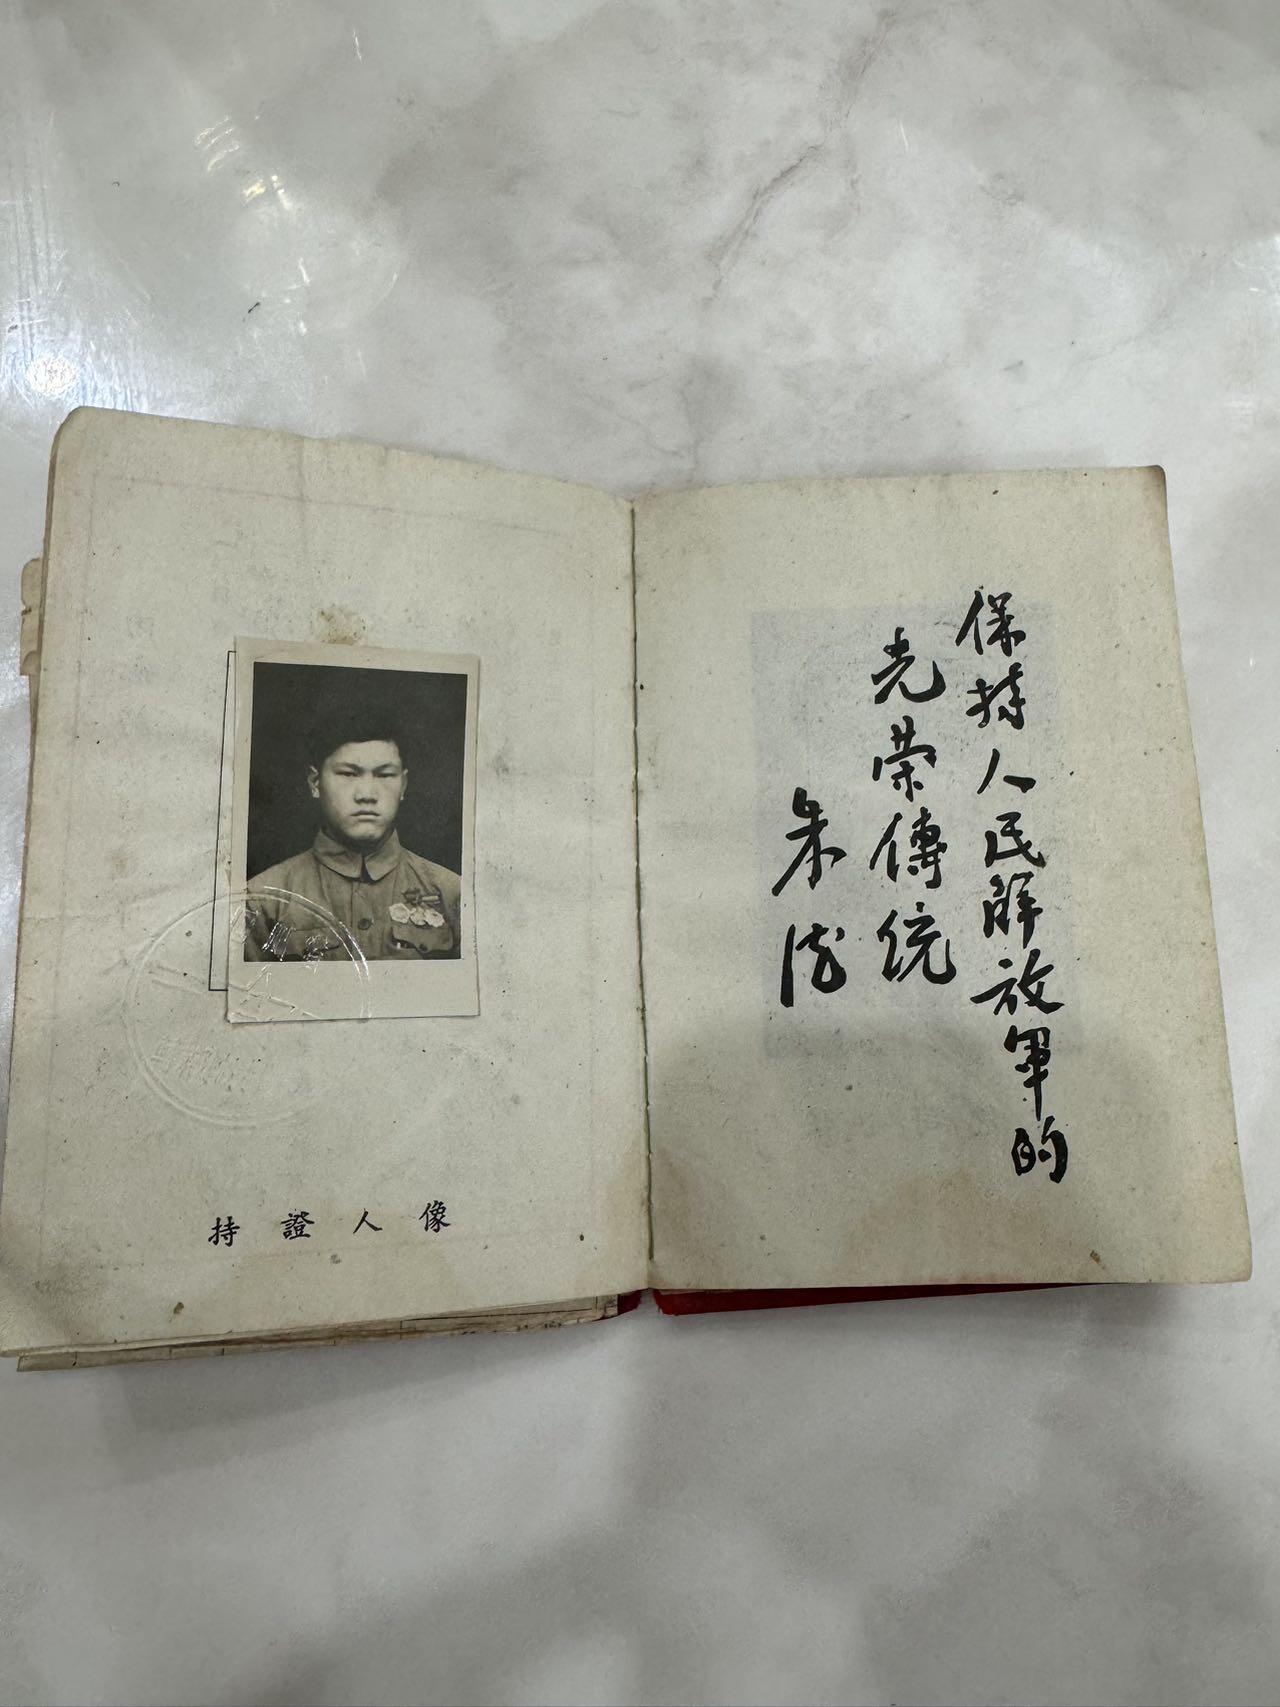 保持人民解放軍的
光荣傳統
朱德
持證人像